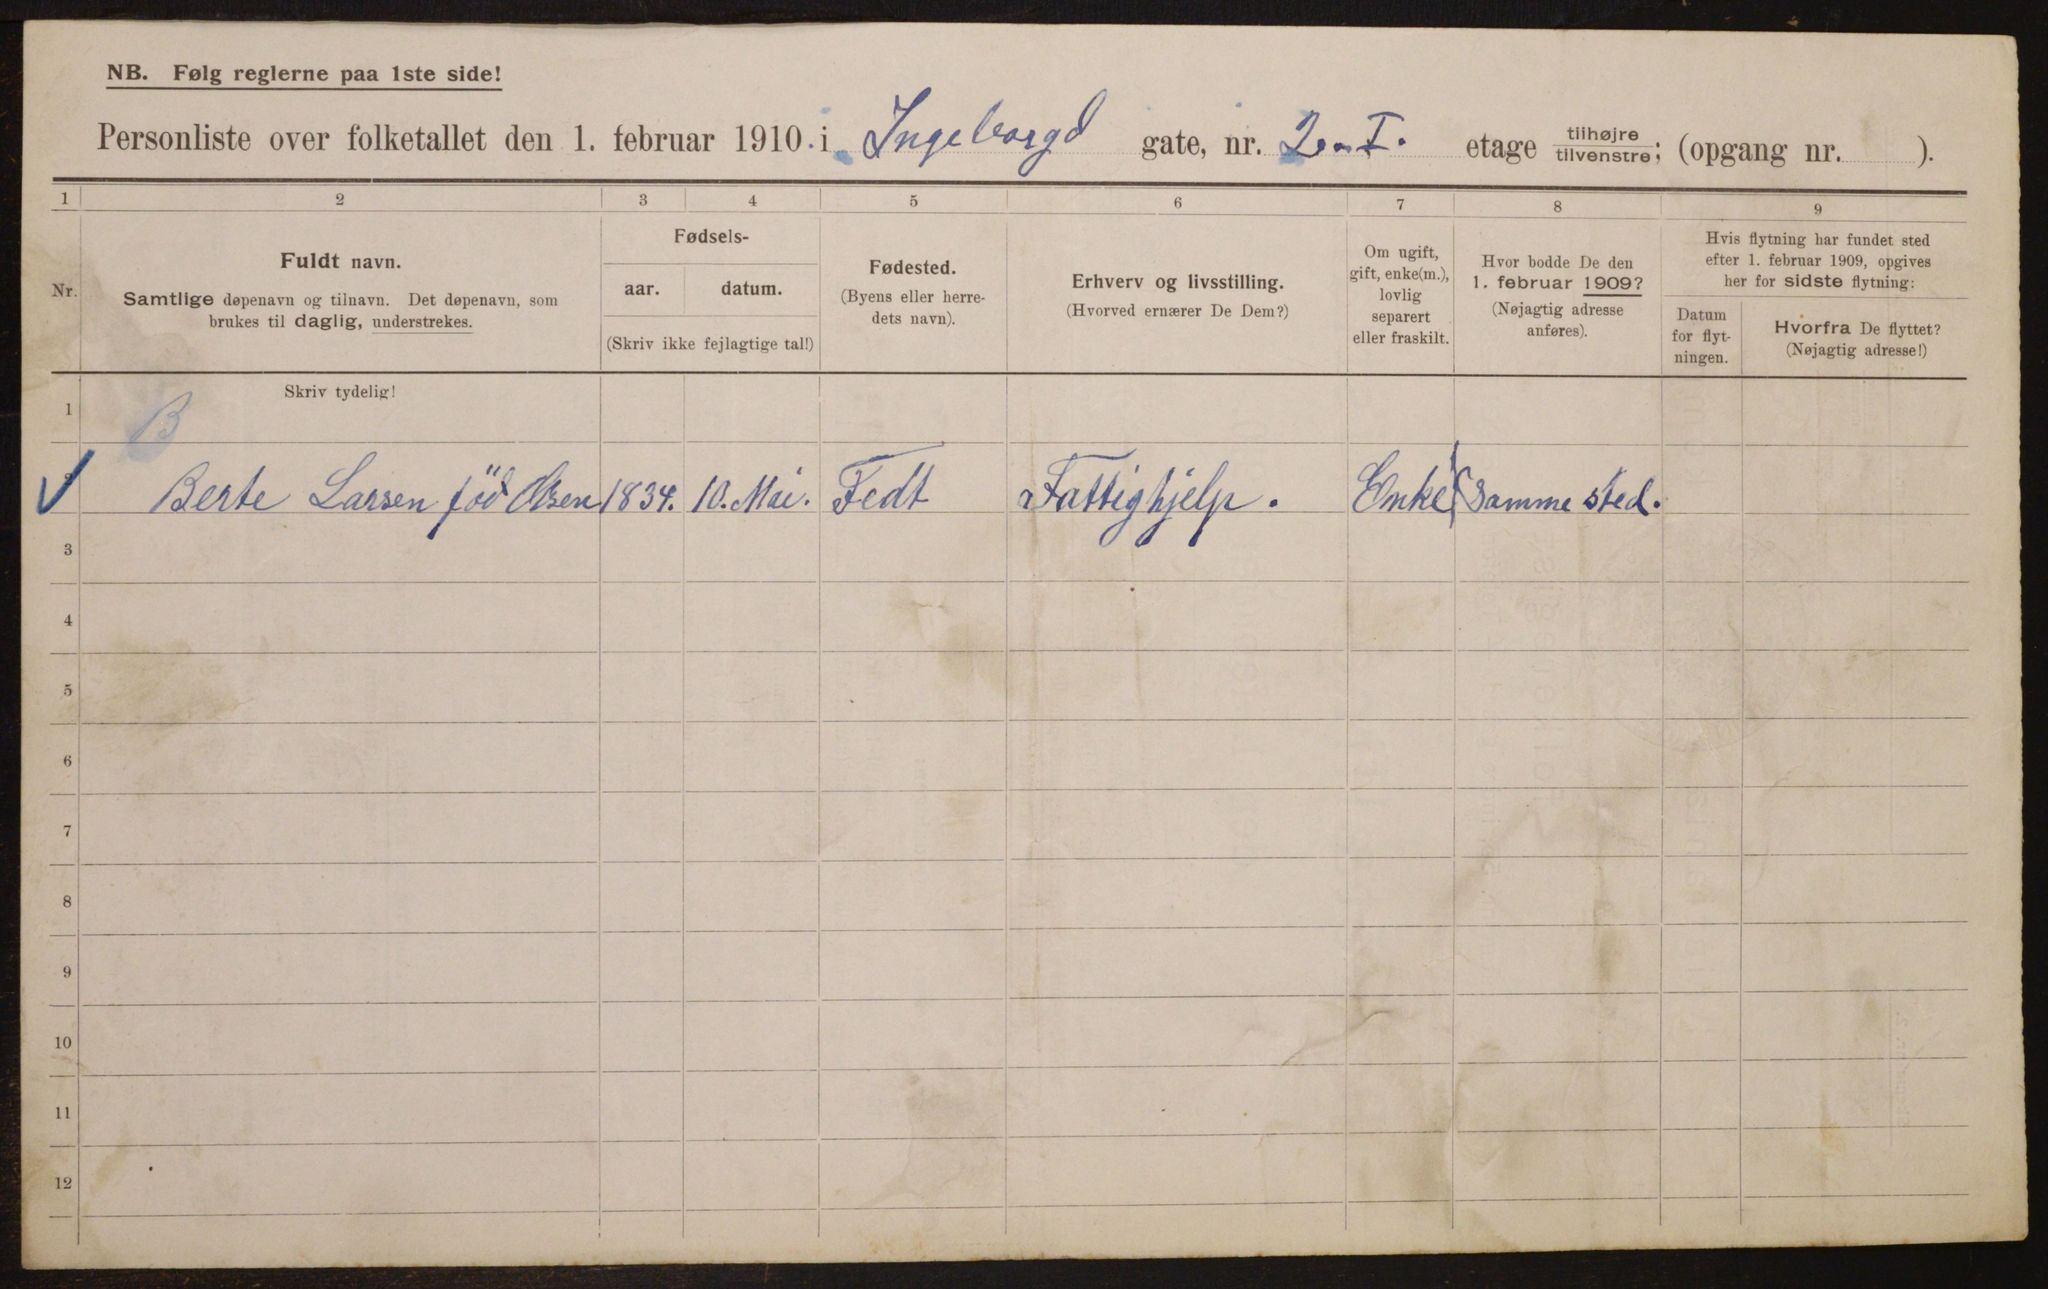 NB. Følg reglerne paa 1ste side!
Personliste over folketallet den 1. februar 1910 i Ingeborgd gate, nr. 2. I. etage tilhøjre/tilvenstre; (opgang nr. ).
1 2 3 4 5 6 7 8 9
Nr.
Fuldt navn.
Samtlige døpenavn og tilnavn. Det døpenavn, som
brukes til daglig, understrekes.
Fødsels-
aar. datum.
(Skriv ikke fejlagtige tal!)
Fødested.
(Byens eller herre-
dets navn).
Erhverv og livsstilling.
(Hvorved ernærer De Dem?)
Om ugift,
gift, enke(m.),
lovlig
separert
eller fraskilt.
Hvor bodde De den
1. februar 1909?
(Nøjagtig adresse
anføres).
Hvis flytning har fundet sted
efter 1. februar 1909, opgives
her for sidste flytning:
Datum
for flyt-
ningen.
Hvorfra De flyttet?
(Nøjagtig adresse!)
Skriv tydelig!
1 B
2 Berte Larsen föd Olsen 1834. 10. Mai. Fedt Fattighjelp. Enke Samme sted.
3
4
5
6
7
8
9
10
11
12